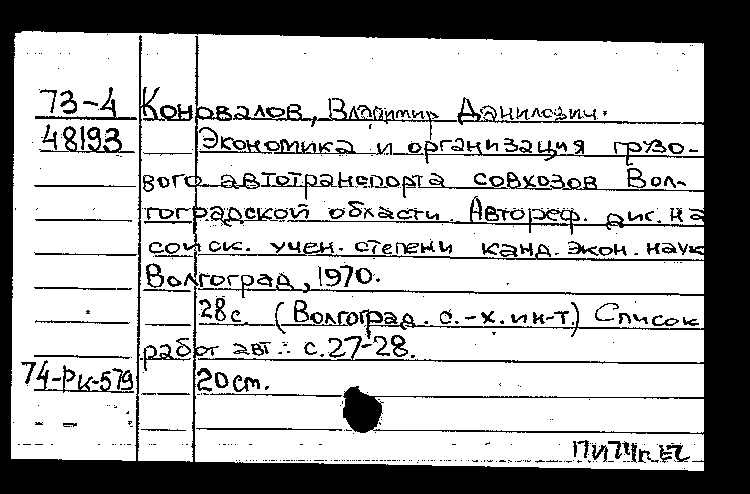 73-4 Коновалов, Владимир Данилович.
48193 Экономика и организация грузо-
вого автотранспорта совхозов Вол-
гоградской области. Автореф. дис. на
соиск. учен. степени канд. экон. наук
Волгоград, 1970.
28с. (Волгоград. с.-х. ин-т.) Список
работ авт.: с.27-28.
74-Рк-579 20см.